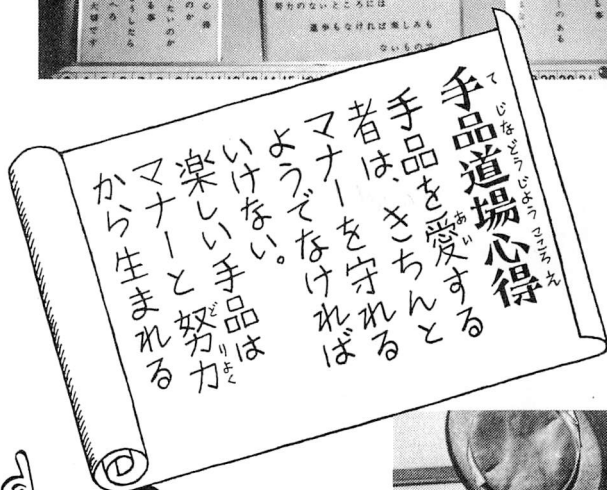 努力のないところには
進歩もなければ楽しみも
ないもので
手品道場心得
手品を愛する
者は、きちんと
マナーを守れる
ようでなければ
いけない。
楽しい手品は
マナーと努力
から生まれる